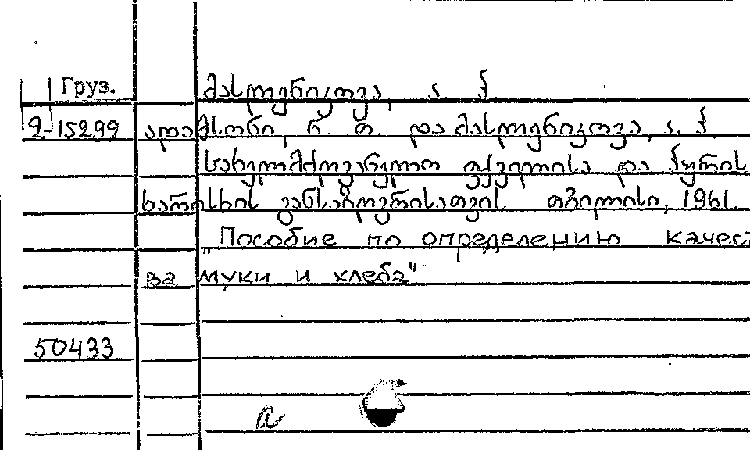 Груз. მასლენიკოვა, ა. ჭ.
2-15299 ადამსონი, რ. ო. და მასლენიკოვა, ა. ჭ.
სახელმძღვანელო ფქვილისა და პურის
ხარისხის განსაზღვრისათვის. თბილისი, 1961.
"Пособие по определению качест
ва муки и хлеба"
50433
а